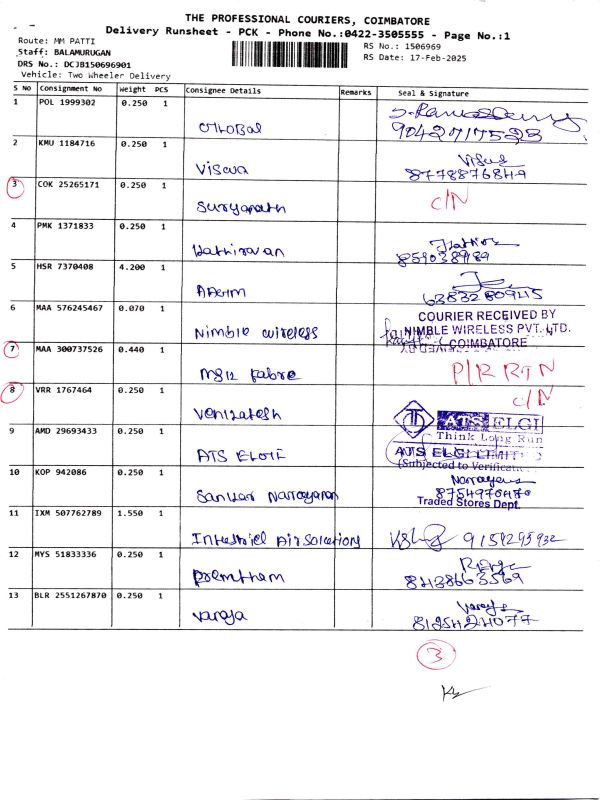 THE PROFESSIONAL COURIERS, COIMBATORE
Delivery Runsheet - PCK - Phone No.:0422-3505555 - Page No.:1
Route: MM PATTI
RS No.: 1506969
Staff: BALAMURUGAN
RS Date: 17-Feb-2025
DRS No.: DCJB150696901
Vehicle: Two Wheeler Delivery
S No Consignment No Weight PCS Consignee Details Remarks Seal & Signature
1 POL 1999302 0.250 1
9042717523
2 KMU 1184716 0.250 1 Viswa
8778876849
3 COK 25265171 0.250 1 Suryanath C/N
4 PMK 1371833 0.250 1 Kathiravan
5 HSR 7370408 4.200 1
6383280945
6 MAA 576245467 0.070 1 Nimble wireless
COURIER RECEIVED BY
NIMBLE WIRELESS PVT. LTD.
COIMBATORE
7 MAA 300737526 0.440 1 P/R RTN
8 VRR 1767464 0.250 1 Venkatesh C/N
9 AMD 29693433 0.250 1 ATS ELGI
ATS ELGI
Think Long Run
ATS ELGI LIMITED
(Subjected to Verificat
10 KOP 942086 0.250 1 Sankar Narrayanan
Narrayans
8754970470
Traded Stores Dept.
11 IXM 507762789 1.550 1 9159295932
12 MYS 51833336 0.250 1 Premtham
8438663569
13 BLR 2551267870 0.250 1 Varaja
8125424077
3